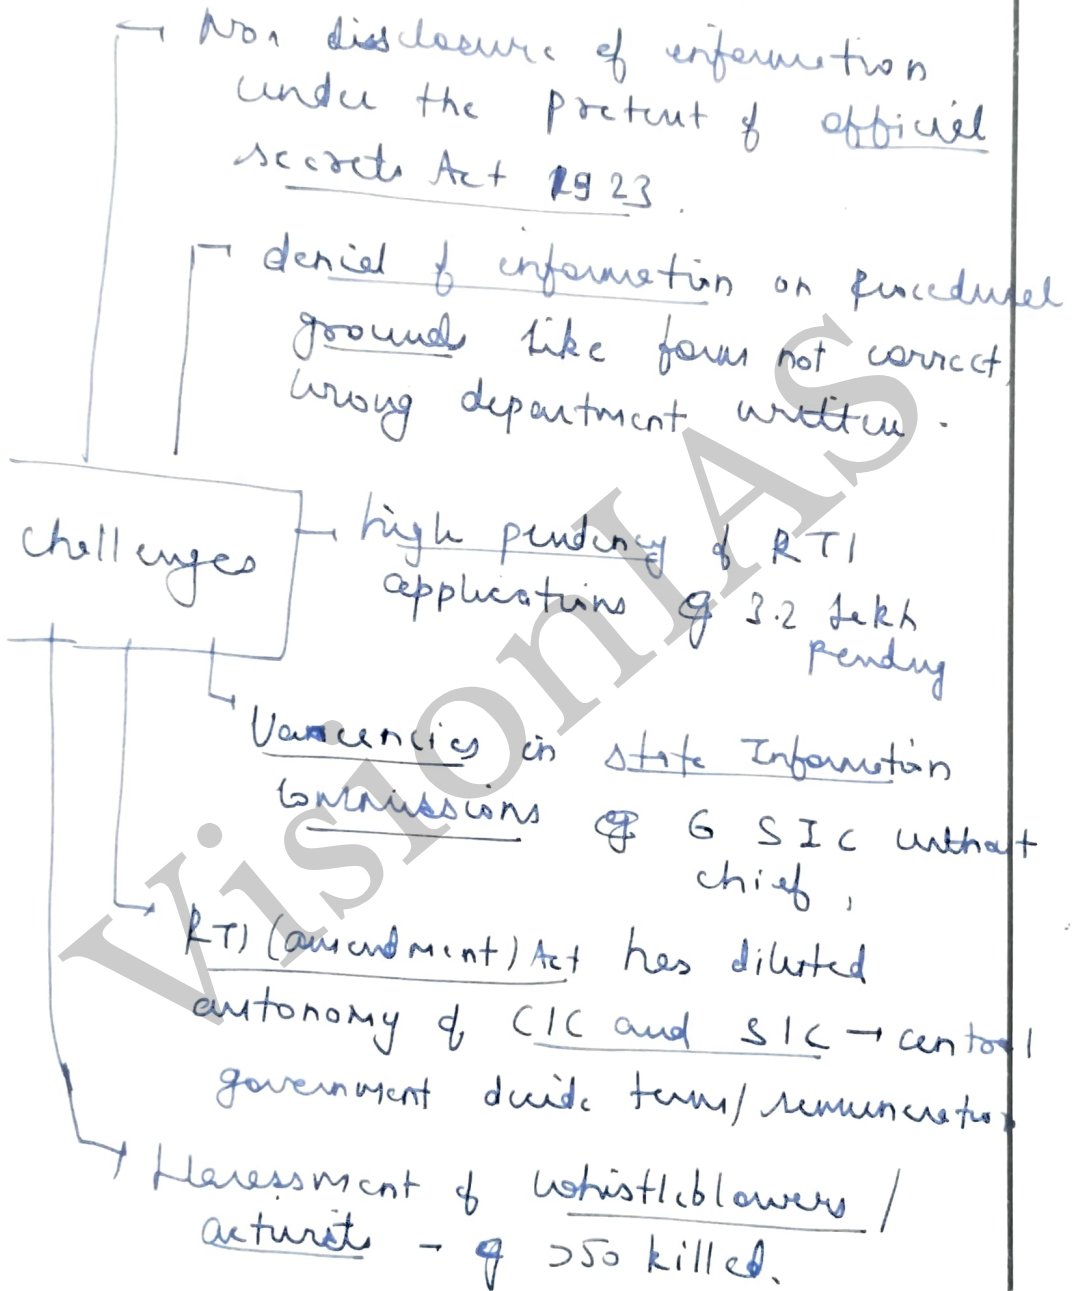 Non disclosure of information
under the pretext of official
secrets Act 1923.
denial of information on procedural
ground like form not correct,
wrong department written.
challenges
high pendency of RTI
applications eg 3.2 lakh
pending
Vacancies in state Information
Commissions eg 6 SIC without
chief,
RTI (amendment) Act has diluted
autonomy of CIC and SIC → central
government decide term/ remuneration
Harassment of whistleblowers/
activists - eg >50 killed.
VisionIAS